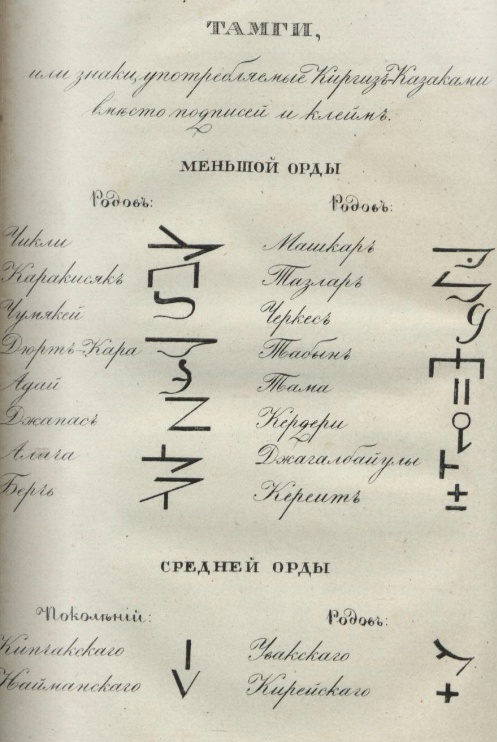 ТАМГИ,
или знаки, употребляемые Киргизъ-Казаками
вмѣсто подписей и клеймъ.
МЕНЬШОЙ ОРДЫ
Родовъ:
Чикли
Каракисякъ
Чумякей
Дюртъ-Кара
Адай
Джапасъ
Алача
Берчь
Родовъ:
Машкаръ
Тазларъ
Черкесъ
Табынъ
Тама
Кердери
Джагалбайулы
Кереитъ
СРЕДНЕЙ ОРДЫ
Поколѣній:
Кипчакскаго
Найманскаго
Родовъ:
Увакскаго
Кирейскаго